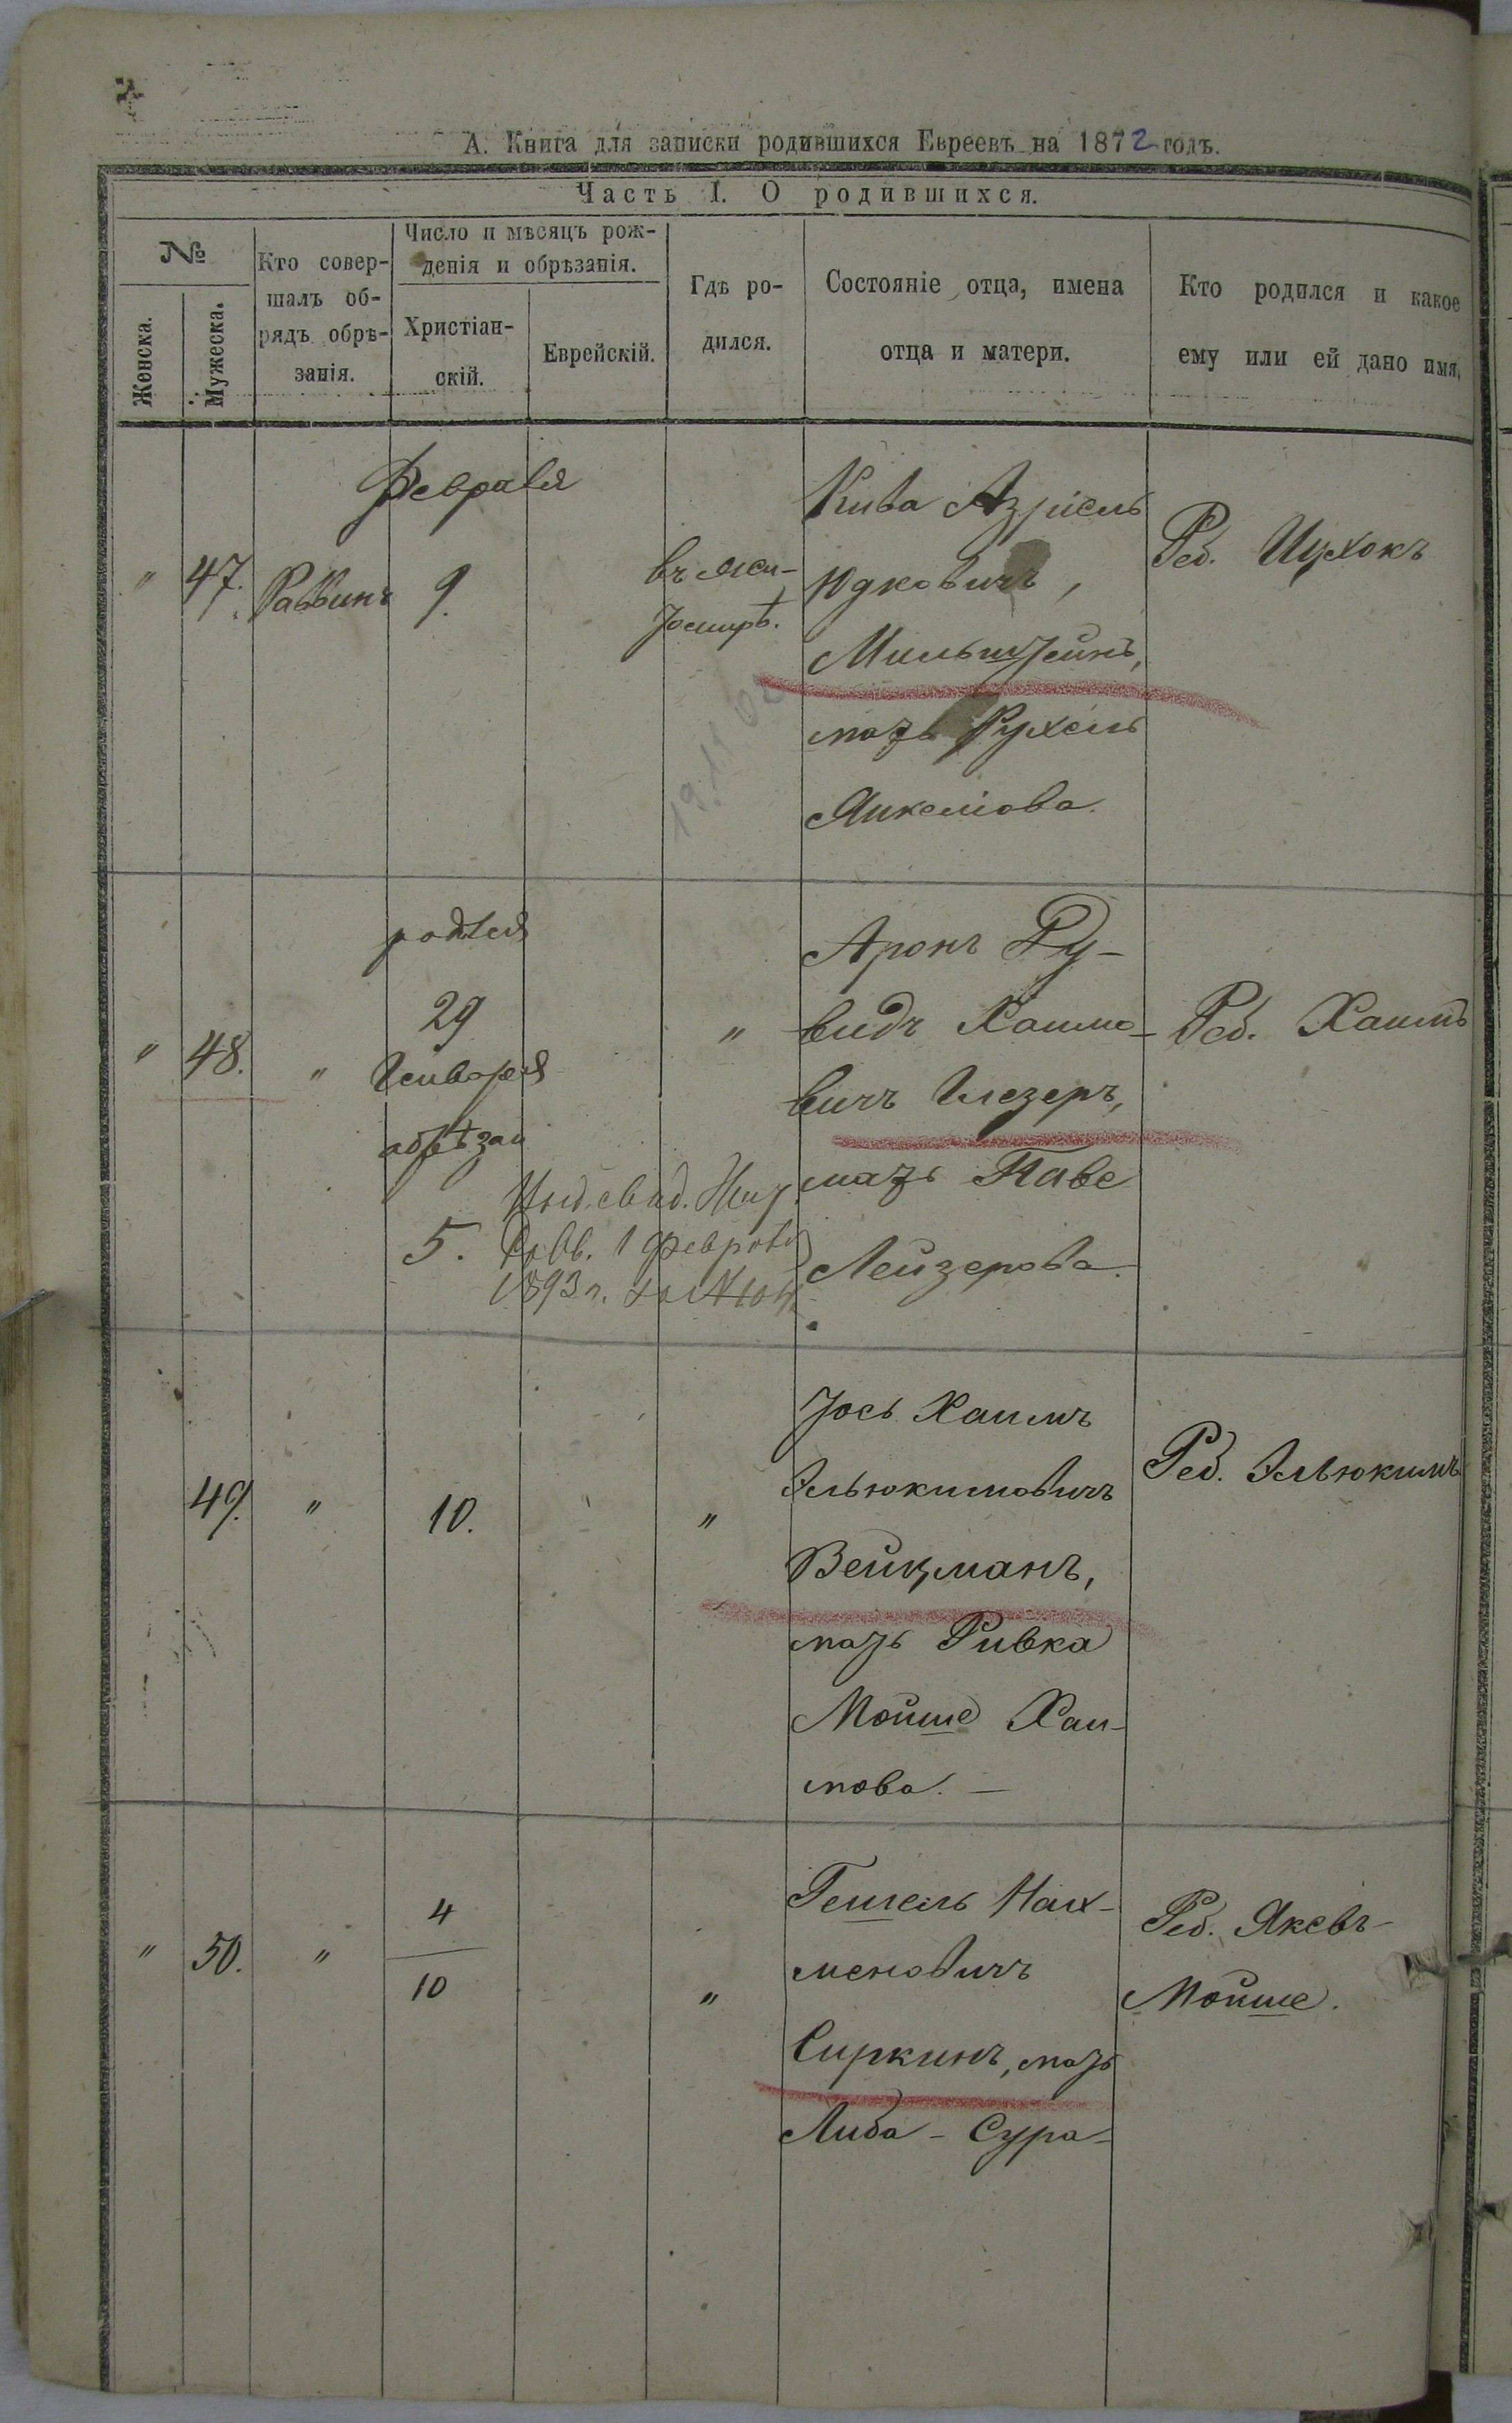 А. Книга для записки родившихся Евреевъ на 1872 годъ.
Часть I. О родившихся.
№
Женска.
Мужеска.
Кто совер-
шалъ об-
рядъ обрѣ-
занія.
Число и мѣсяцъ рож-
денія и обрѣзанія.
Христіан-
скій.
Еврейскій.
Гдѣ ро-
дился.
Состояніе отца, имена
отца и матери.
Кто родился и какое
ему или ей дано имя.
Февраля
" 47. Раввинъ 9.
въ Жи-
томирѣ.
Кива Азріель
Юдковичъ,
Мильштейнъ,
мать Рухель
Янкелiова.
Реб. Ицхокъ
" 48. "
родился
29
Генваря
обрѣзан
5.
Выд. свид. Жит.
Равв. 1 Февраля
1893 г. за №
"
Аронъ Ду-
видъ Хаимо-
вичъ Глезеръ,
мать Хаве
Лейзерова.
Реб. Хаимъ
49. " 10. "
Іось Хаимъ
Эльюкимовичъ
Вейцманъ,
мать Ривка
Мойше Хаи-
мова. —
Реб. Эльюкимъ
" 50. "
4
10
"
Гешель Нах-
меновичъ
Сиркинъ, мать
Либа - Сура-
Реб. Якевъ-
Мойше.